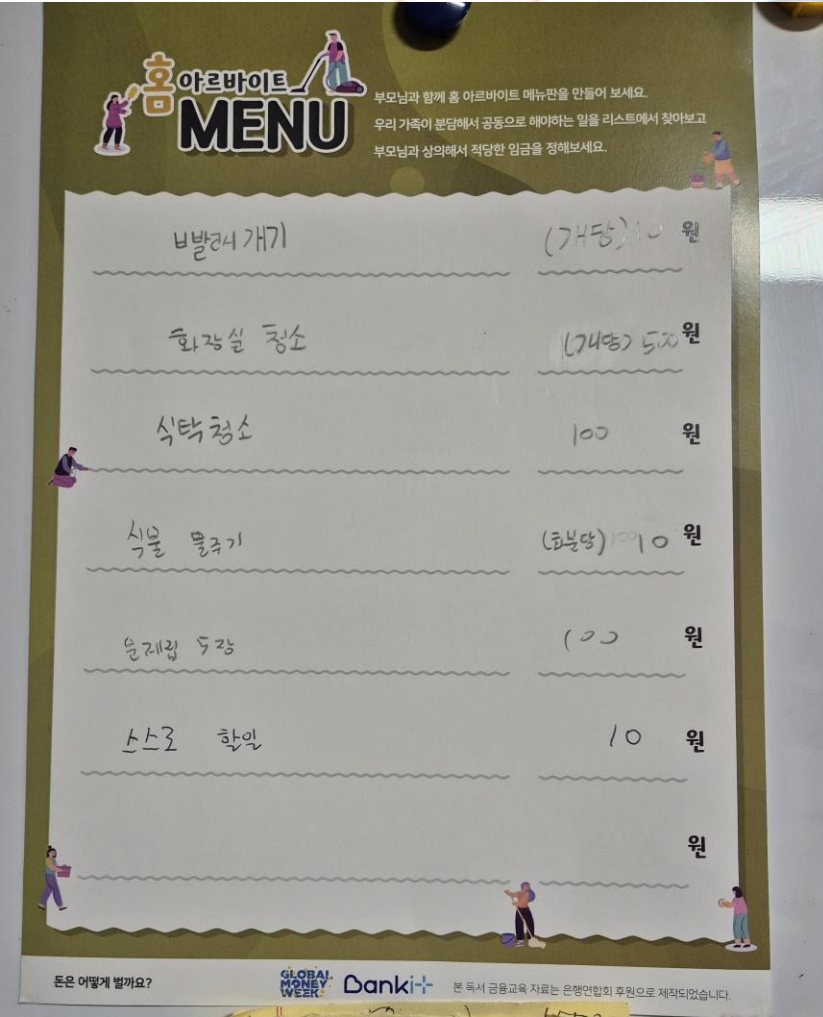 홈 아르바이트
MENU
부모님과 함께 홈 아르바이트 메뉴판을 만들어 보세요.
우리 가족이 분담해서 공동으로 해야하는 일을 리스트에서 찾아보고
부모님과 상의해서 적당한 임금을 정해보세요.
빨래 개기 (개당) 10 원
화장실 청소 (개당) 500 원
식탁 청소 100 원
식물 물주기 (화분당) 10 원
100 원
스스로 할일 10 원
원
돈은 어떻게 벌까요?
GLOBAL MONEY WEEK
Bankit
본 독서 금융교육 자료는 은행연합회 후원으로 제작되었습니다.